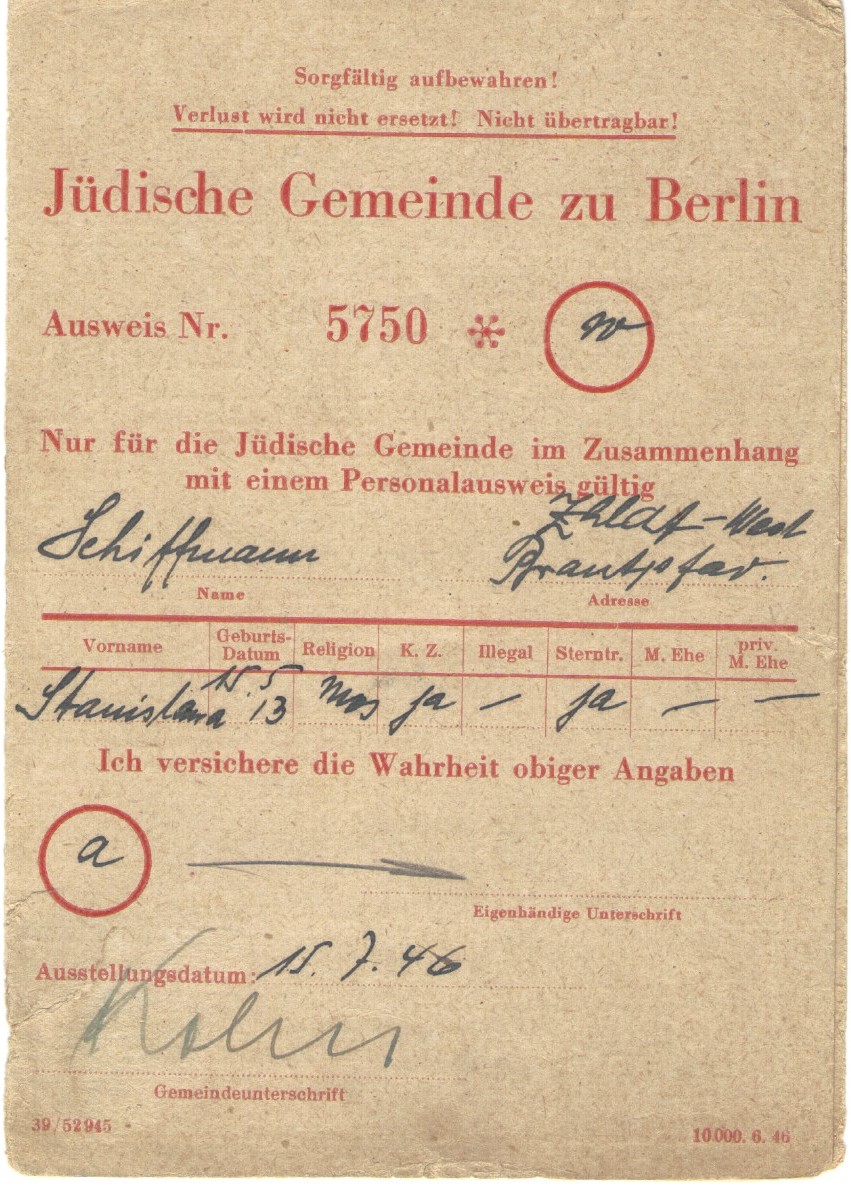 Sorgfältig aufbewahren!
Verlust wird nicht ersetzt! Nicht übertragbar!
Jüdische Gemeinde zu Berlin
Ausweis Nr. 5750 * w
Nur für die Jüdische Gemeinde im Zusammenhang
mit einem Personalausweis gültig
Schiffmann
Name
Adresse
Vorname Geburts-Datum Religion K. Z. Illegal Sterntr. M. Ehe priv. M. Ehe
Stanislawa 15.5 13 mos ja – ja – –
Ich versichere die Wahrheit obiger Angaben
a
Eigenhändige Unterschrift
Ausstellungsdatum: 15.7.46
Gemeindeunterschrift
39/52945 10000. 6. 46